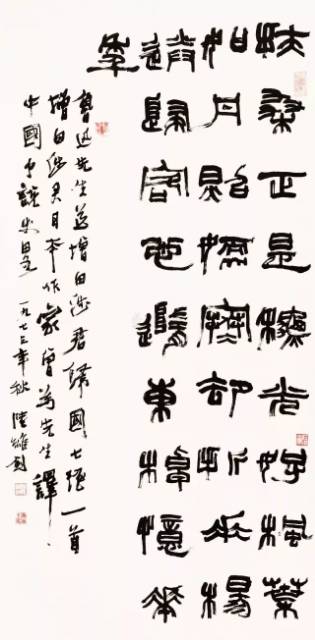 扶桑正是穐光好楓葉
如丹照嫩寒却折垂楊
送歸客心隨東棹憶華
年
魯迅先生送增田涉君歸國七絕一首
增田涉君日本作家曾為先生譯
中國小說史畧 一九七三年秋 陸維釗